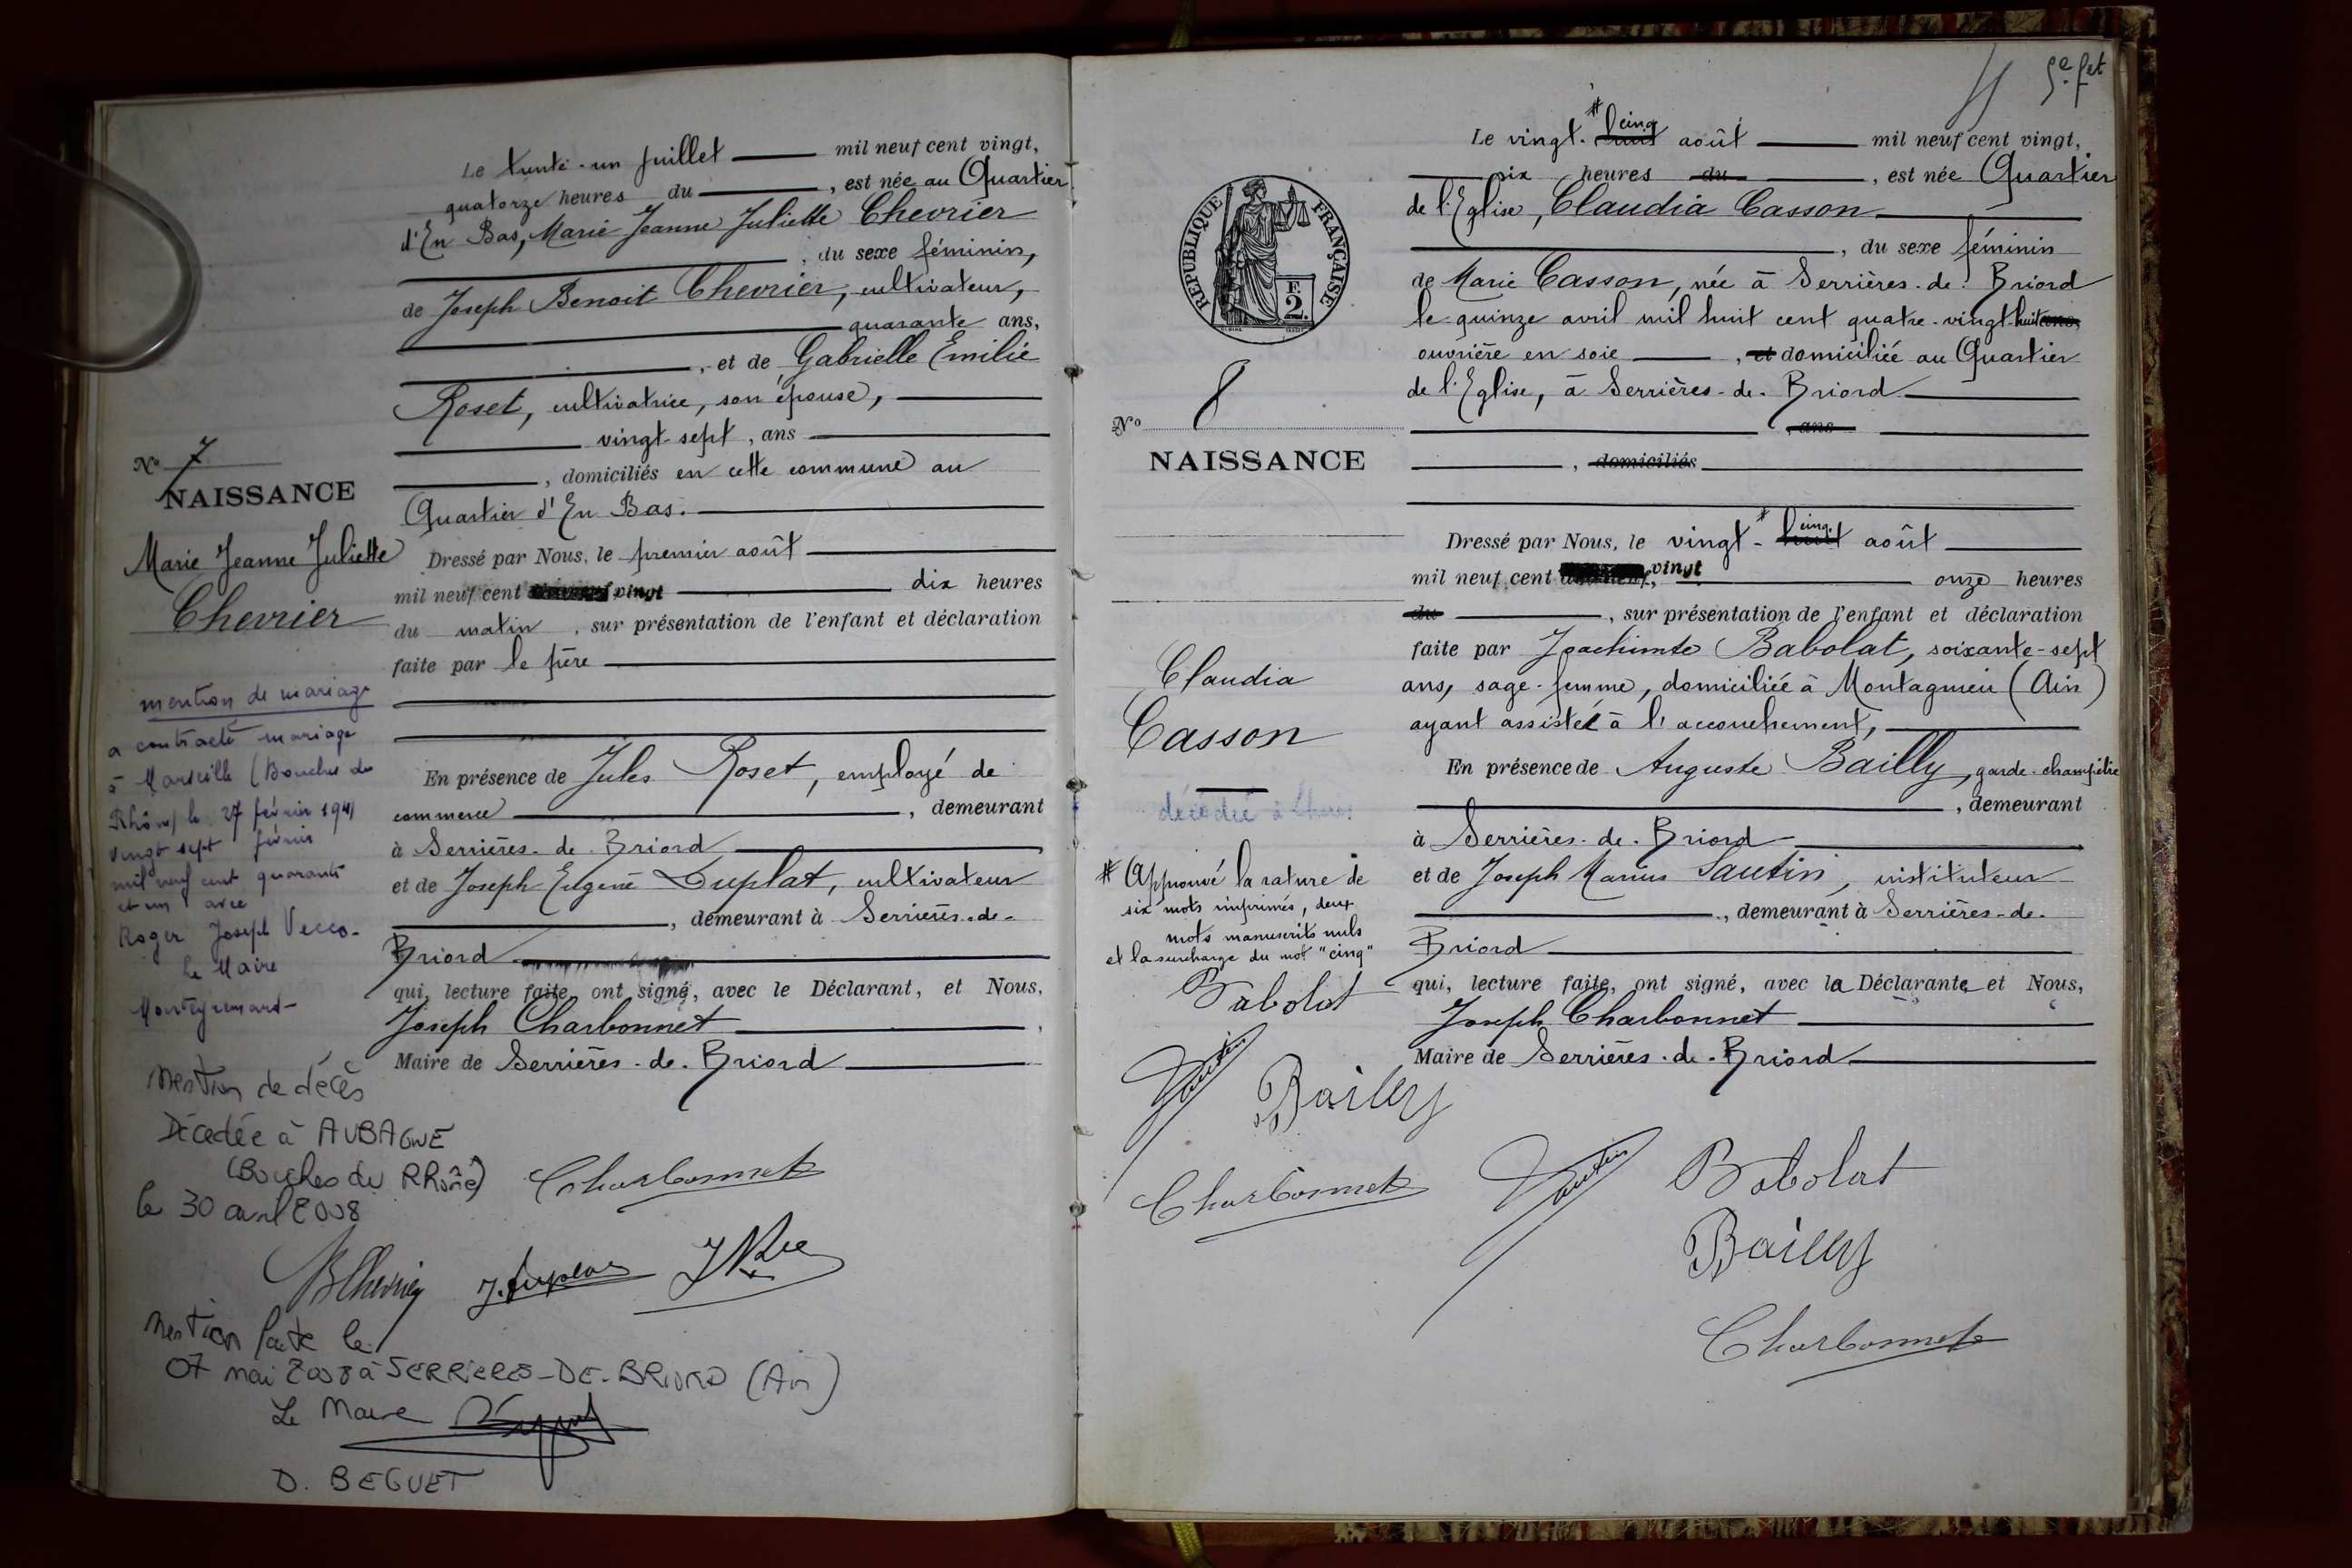 Le trente-un juillet mil neuf cent vingt,
quatorze heures du , est née au Quartier
d'En Bas, Marie Jeanne Juliette Chevrier
, du sexe féminin,
de Joseph Benoit Chevrier, cultivateur,
quarante ans,
, et de Gabrielle Emilie
Roset, cultivatrice, son épouse,
vingt-sept, ans
, domiciliés en cette commune au
Quartier d'En Bas.
Dressé par Nous, le premier août
mil neuf cent vingt dix heures
du matin, sur présentation de l'enfant et déclaration
faite par le père
En présence de Jules Roset, employé de
commerce , demeurant
à Serrières-de-Briord
et de Joseph Eugène Duplat, cultivateur
, demeurant à Serrières-de-
Briord
qui, lecture faite, ont signé, avec le Déclarant, et Nous,
Joseph Charbonnet ,
Maire de Serrières-de-Briord
No 7
NAISSANCE
Marie Jeanne Juliette
Chevrier
mention de mariage
a contracté mariage
à Marseille (Bouches du
Rhône) le 27 février 1941
vingt sept février
mil neuf cent quarante
et un avec
Roger Joseph Vecco-
Le Maire
Mention de décès
Décédée à AUBAGNE
(Bouches du Rhône)
le 30 avril 2008
Charbonnet
B Chevrier J. Duplat
Mention faite le
07 mai 2008 à SERRIERES-DE-BRIORD (Ain)
Le Maire
D. BEGUET
5e fet
Le vingt-huit cinq août mil neuf cent vingt,
six heures du , est née Quartier
de l'Eglise, Claudia Casson
, du sexe féminin
de Marie Casson, née à Serrières-de-Briord
le quinze avril mil huit cent quatre-vingt-huit ans,
ouvrière en soie , et domiciliée au Quartier
de l'Eglise, à Serrières-de-Briord
, ans
, domiciliés
Dressé par Nous, le vingt-huit cinq août
mil neuf cent vingt onze heures
du , sur présentation de l'enfant et déclaration
faite par Joachimte Babolat, soixante-sept
ans, sage-femme, domiciliée à Montagnieu (Ain)
ayant assisté à l'accouchement,
En présence de Auguste Bailly, garde-champêtre
, demeurant
à Serrières-de-Briord
et de Joseph Marius Sautin, instituteur
, demeurant à Serrières-de-
Briord
qui, lecture faite, ont signé, avec la Déclarante et Nous,
Joseph Charbonnet
Maire de Serrières-de-Briord
REPUBLIQUE FRANÇAISE
F.
2.
No 8
NAISSANCE
Claudia
Casson
décédée à
# Approuvé la rature de
six mots imprimés, deux
mots manuscrits nuls
et la surcharge du mot "cinq"
Babolat
Sautin
Bailly
Charbonnet
Sautin
Babolat
Bailly
Charbonnet